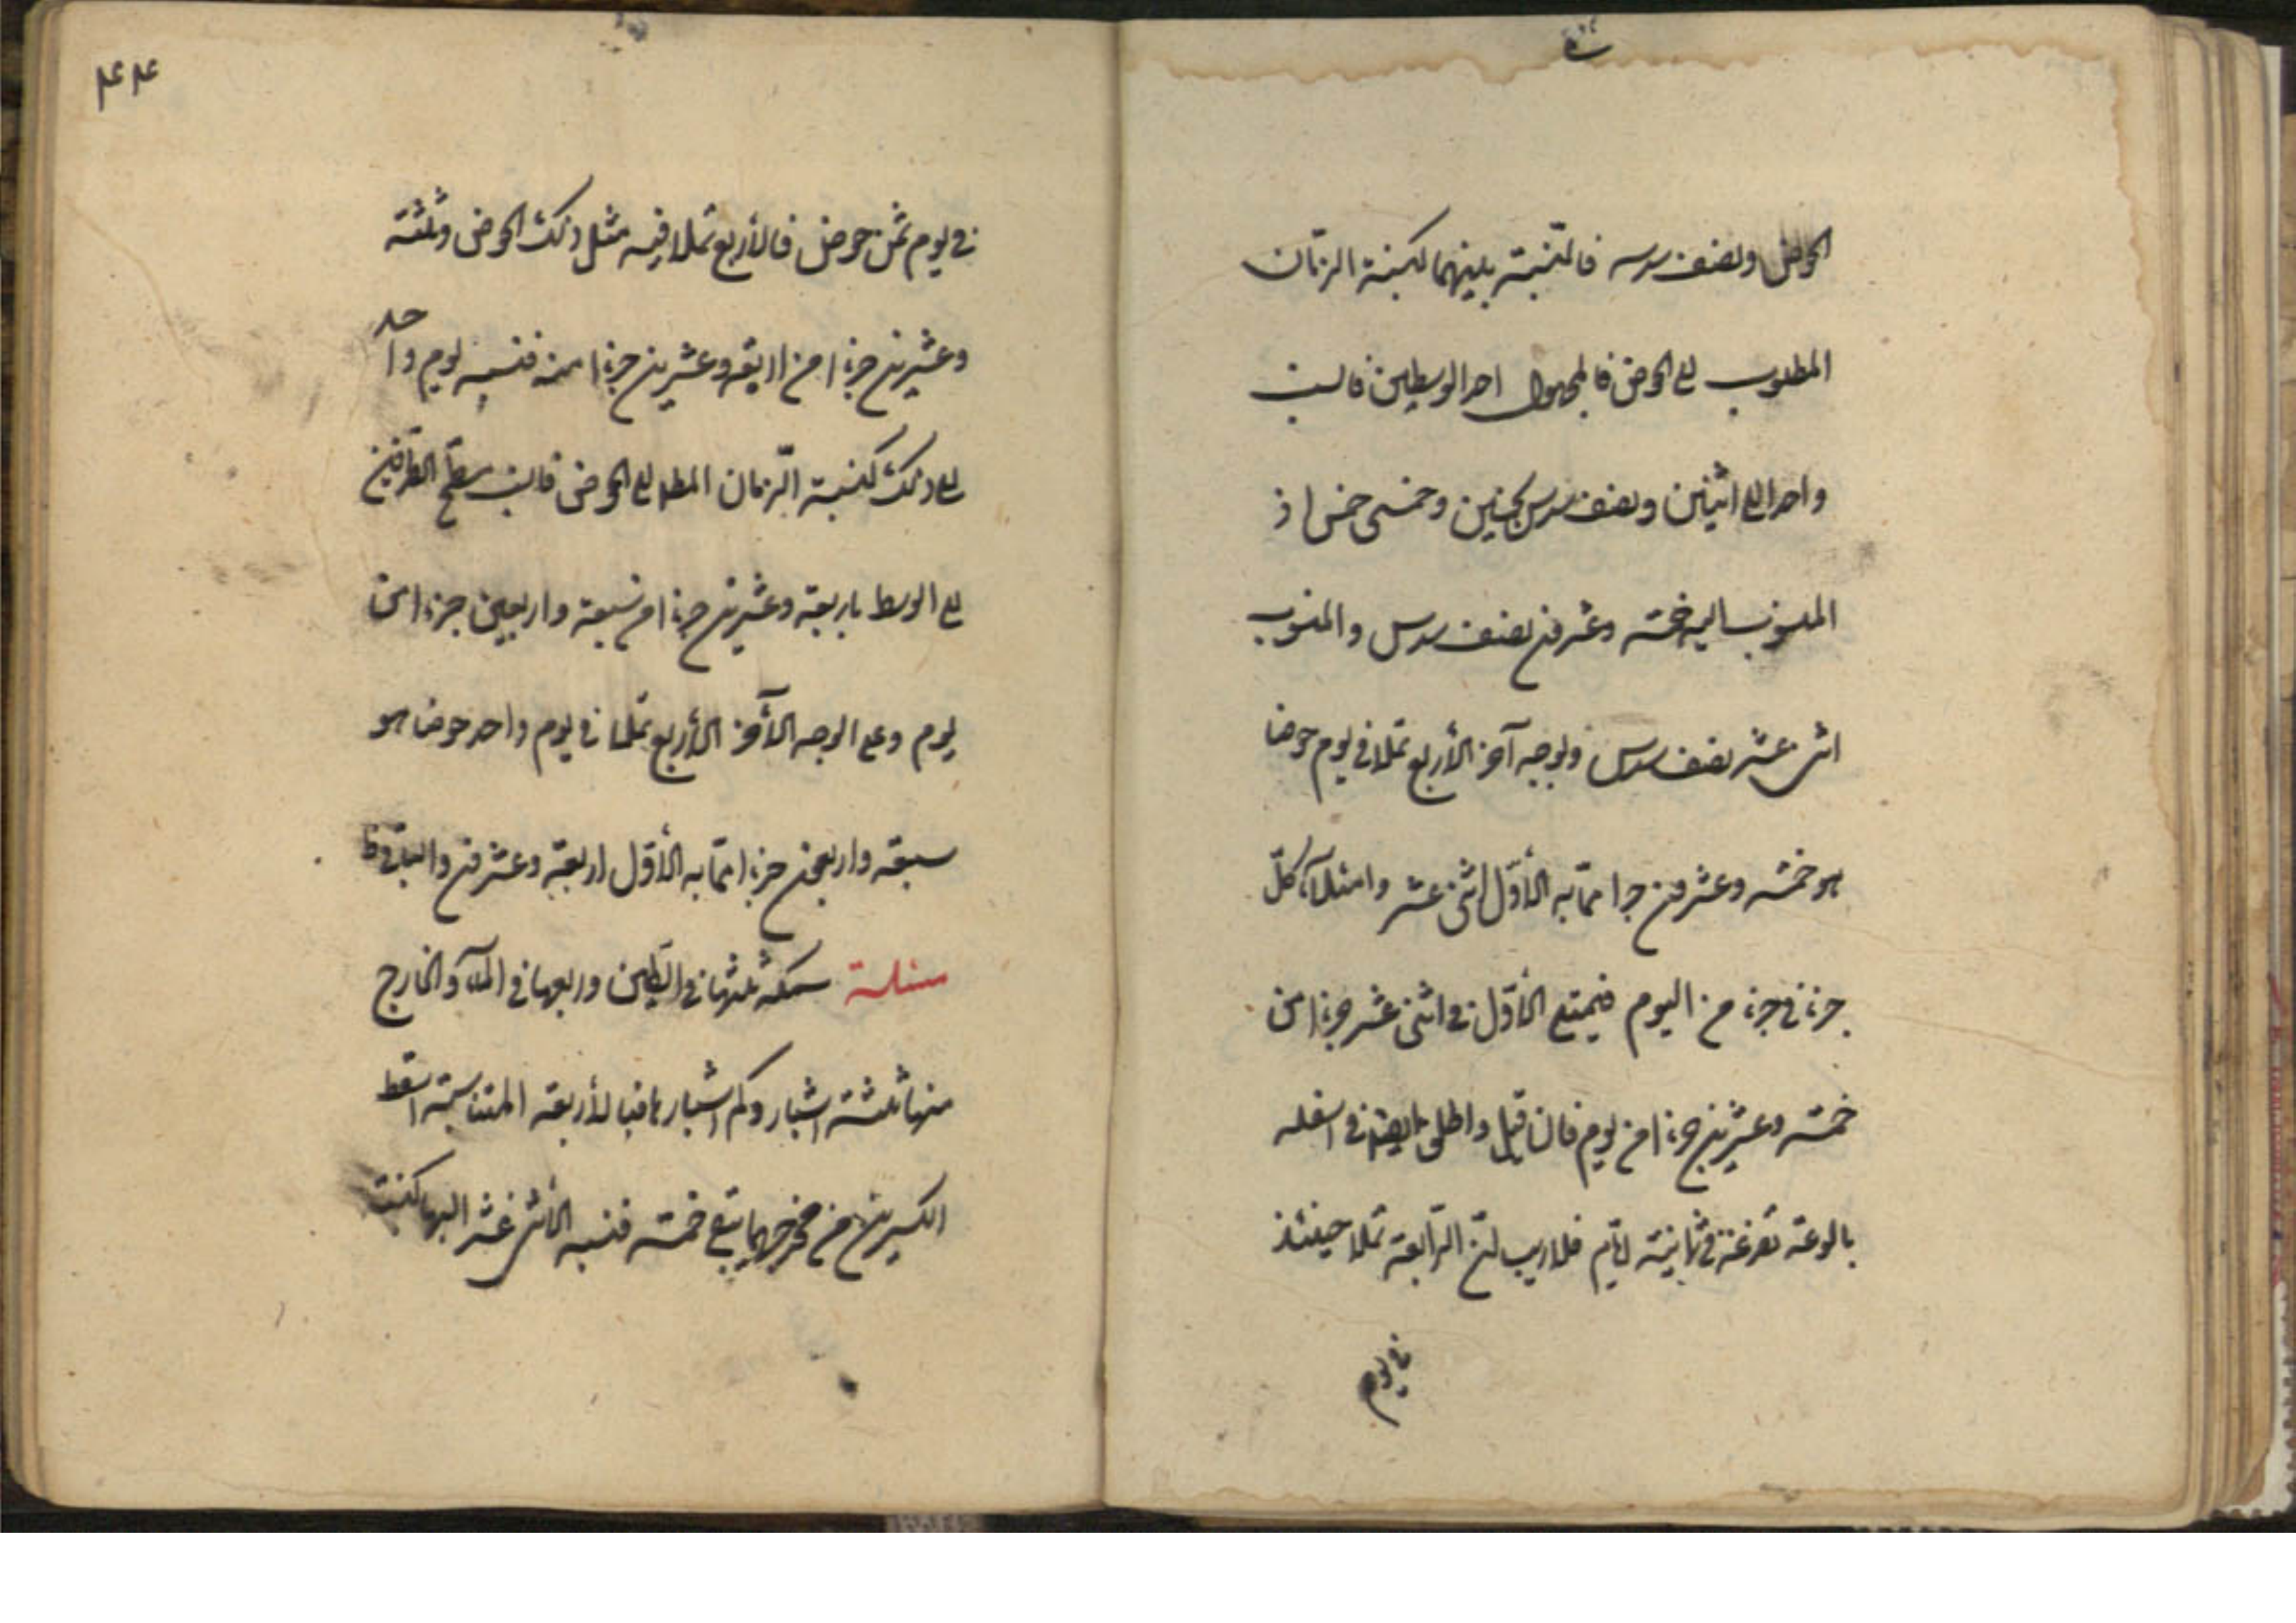 الحوض ونصف سدسه فالنسبة بينهما كنسبة الزمان
المطلوب الى الحوض فالمجهول احد الوسطين فانسب
واحدا الى اثنين ونصف سدس بخمسين وخمسى خمس اذ
المنسوب اليه خمسة وعشرون نصف سدس والمنسوب
اثنى عشر نصف سدس وبوجه آخر الأربع تملا فى يوم حوضا
هو خمسة وعشرون جزا مما به الأول اثنى عشر وامتلاء كل
جزء فى جزء من اليوم فيمتلى الأول فى اثنى عشر جزءا من
خمسة وعشرين جزءا من يوم فان قيل واطلق ايضا فى اسفله
بالوعة تفرغه فى ثمانية ايام فلا ريب ان الرابعة تملا حينئذ
فى يوم
۴۴
فى يوم ثمن حوض فالأربع تملا فيه مثل ذلك الحوض وثلثة
وعشرين جزءا من اربعة وعشرين جزءا منه فنسبة يوم واحد
الى ذلك كنسبة الزمان المط الى الحوض فانسب سطح الطرفين
الى الوسط باربعة وعشرين جزءا من سبعة واربعين جزءا من
يوم وعلى الوجه الآخر الأربع تملا فى يوم واحد حوضا هو
سبعة واربعين جزءا مما به الأول اربعة وعشرون والباقى ظ
مسئلة سمكة ثلثها فى الطين وربعها فى الماء والخارج
منها ثلثة اشبار وكم اشبارها فبالأربعة المتناسبة اسقط
الكسرين من مخرجهما يبقى خمسة فنسبة الأثنى عشر اليها كنسبة